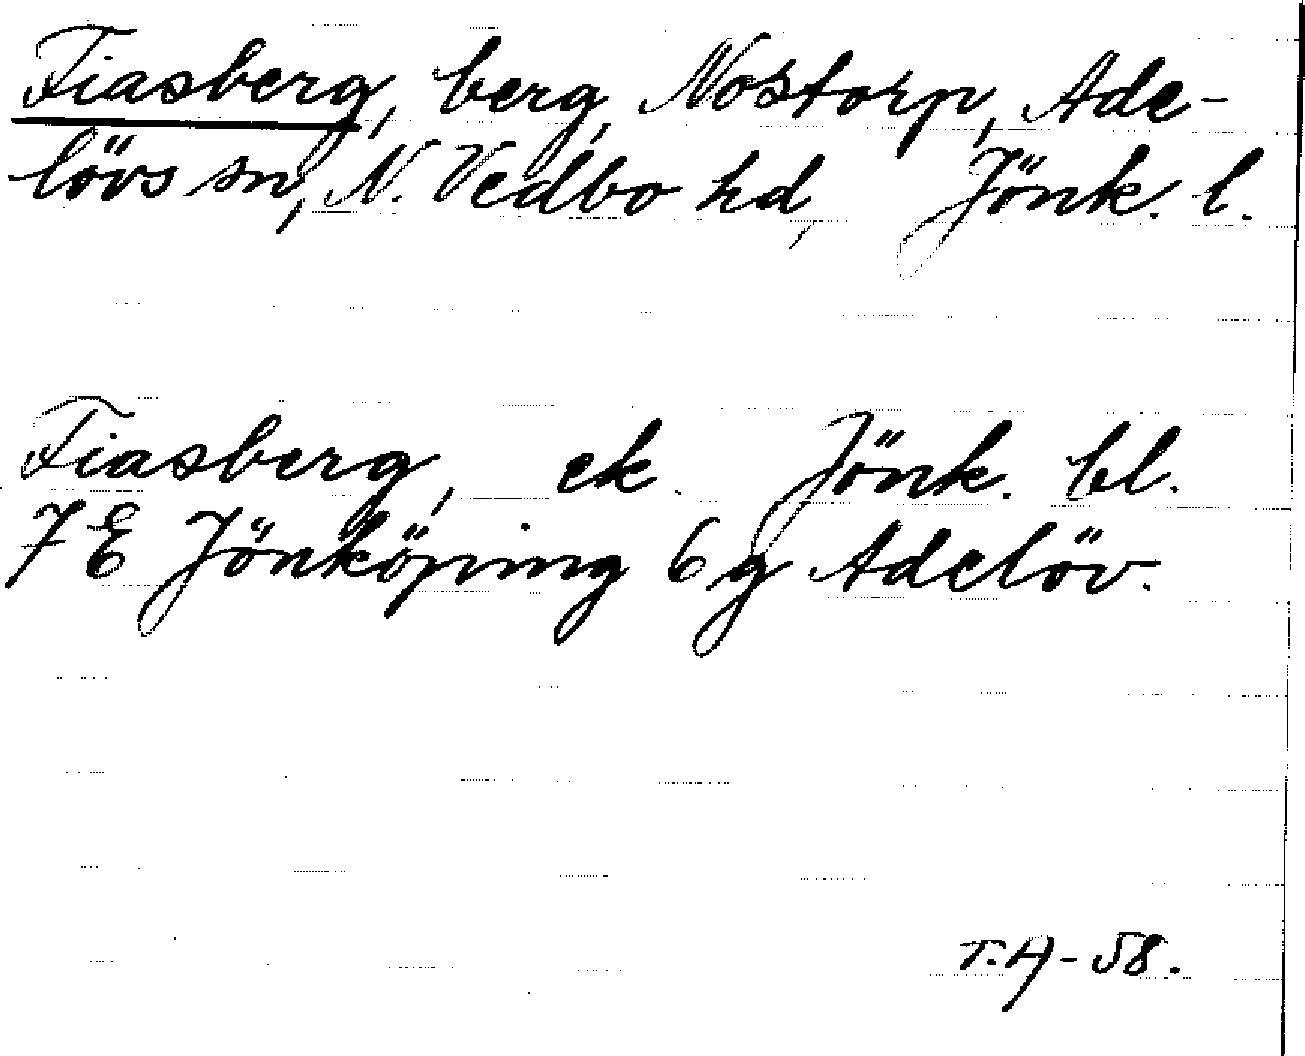 Fiasberg, berg, Nostorp, Ade-
lövs sn, N. Vedbo hd, Jönk. l.
Fiasberg, ek. Jönk. bl.
7 E Jönköping 6 g Adelöv.
T.A - 58.